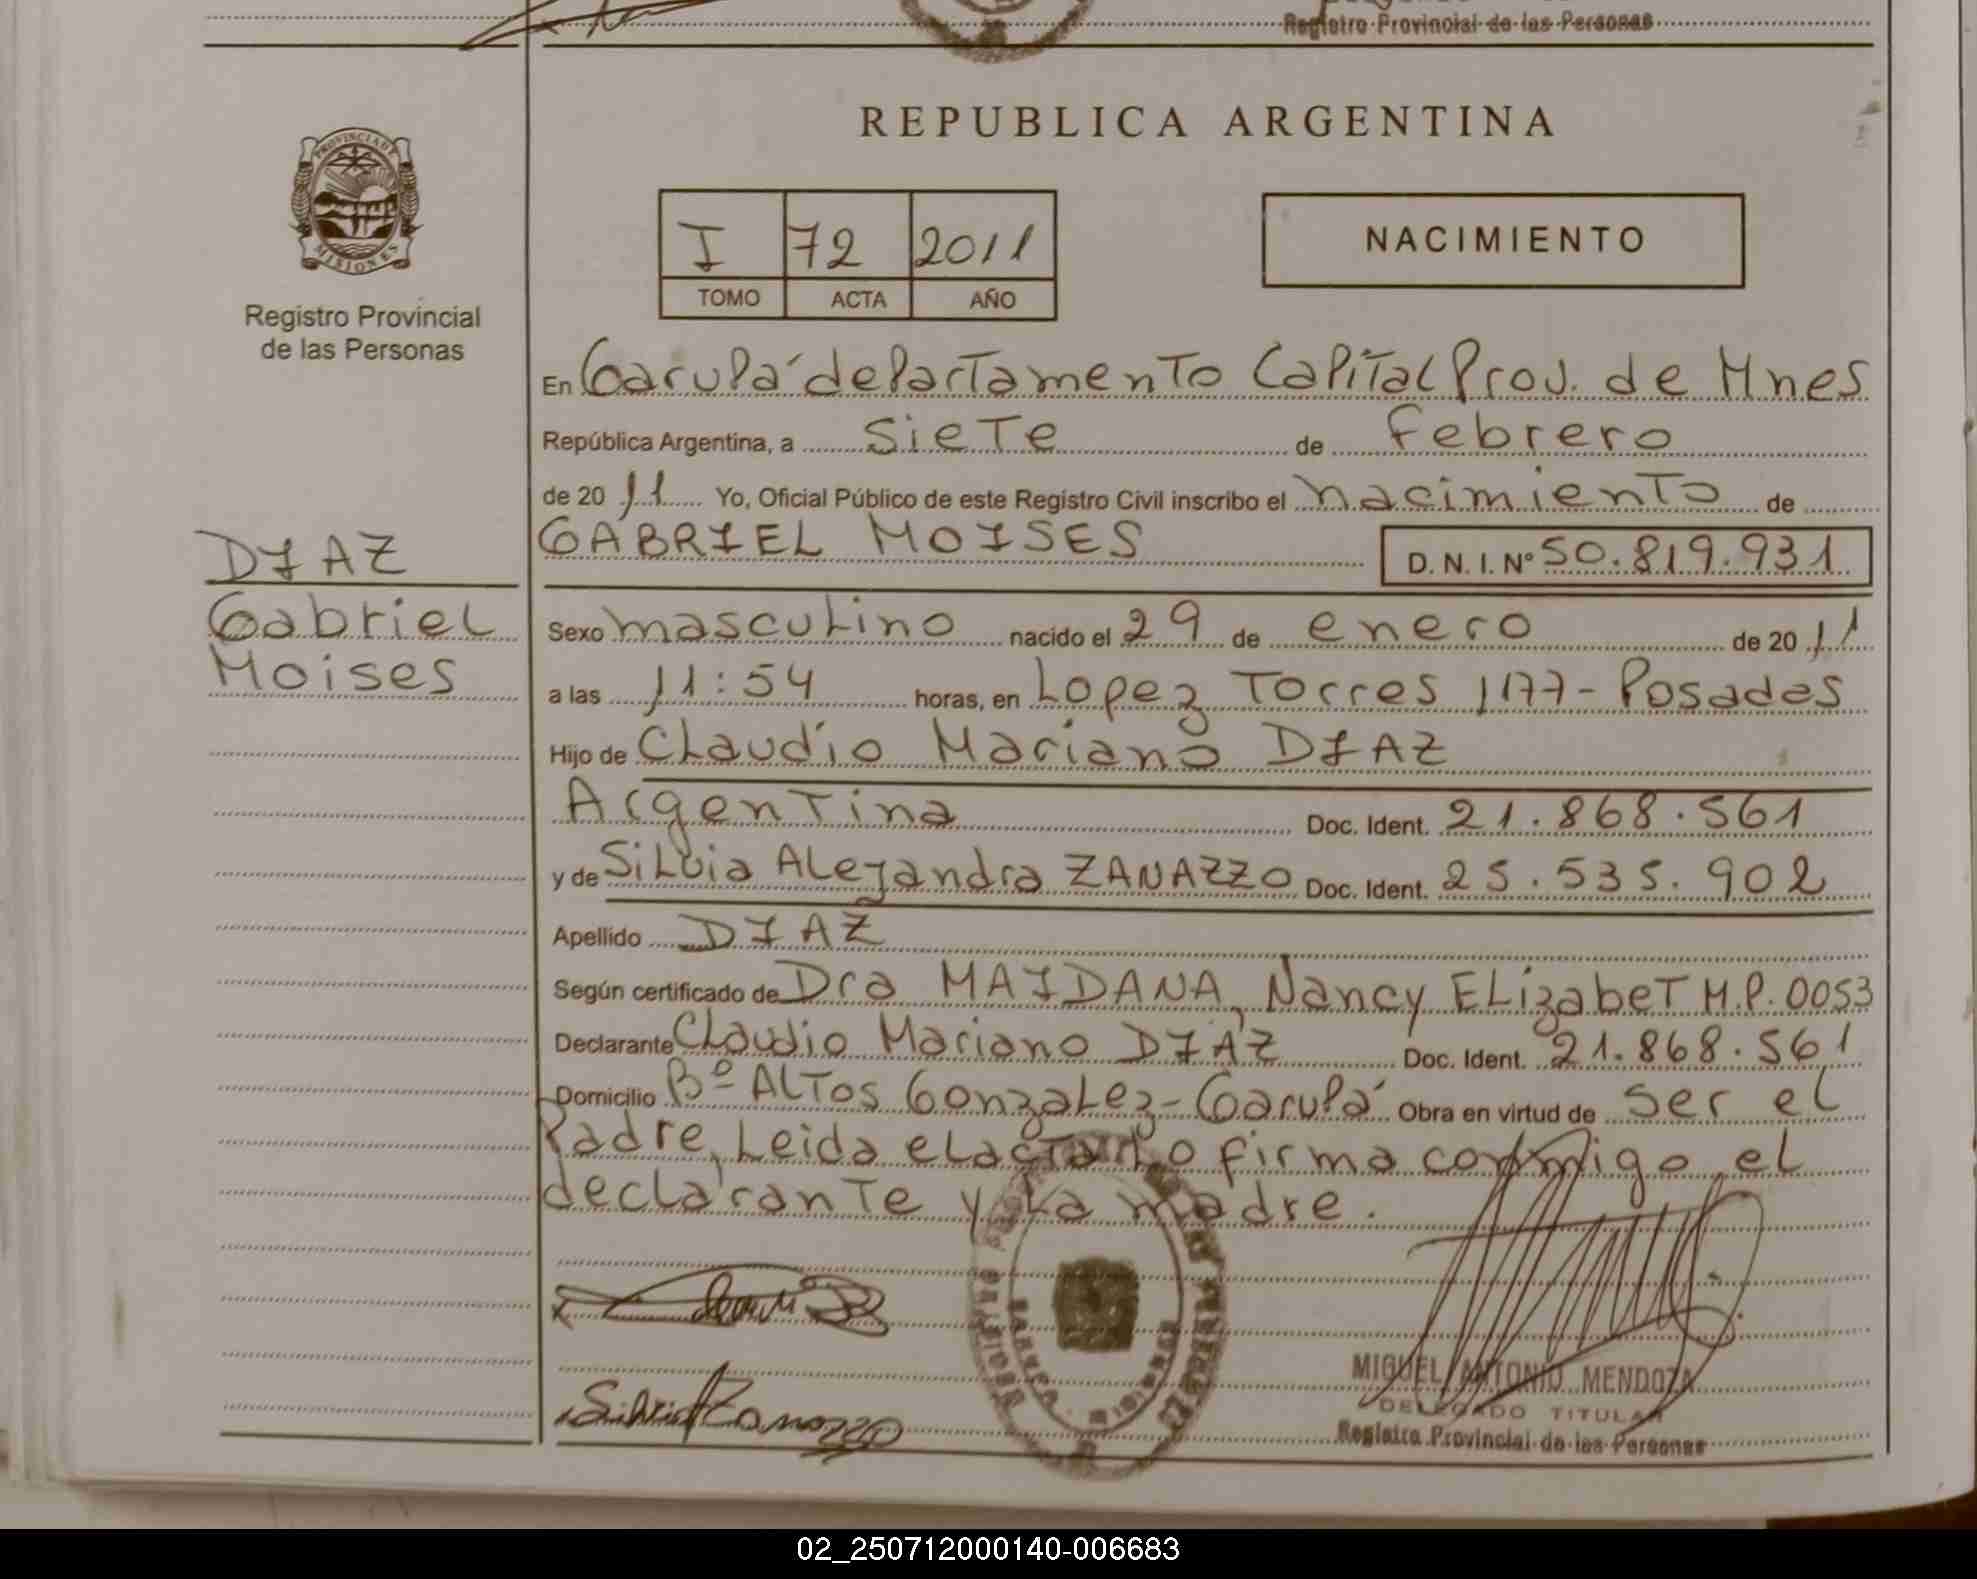 Registro Provincial de las Personas
REPUBLICA ARGENTINA
PROVINCIA DE
MISIONES
Registro Provincial
de las Personas
I 72 2011
TOMO ACTA AÑO
NACIMIENTO
En Garupá departamento Capital Prov. de Mnes
República Argentina, a siete de febrero
de 20 11 Yo, Oficial Público de este Registro Civil inscribo el nacimiento de
GABRIEL MOISES D. N. I. Nº 50.819.931
DIAZ
Gabriel
Moises
Sexo masculino nacido el 29 de enero de 20 11
a las 11:54 horas, en Lopez Torres 1177 - Posadas
Hijo de Claudio Mariano DIAZ
Argentina Doc. Ident. 21.868.561
y de Silvia Alejandra ZANAZZO Doc. Ident. 25.535.902
Apellido DIAZ
Según certificado de Dra MAIDANA, Nancy Elizabet M.P. 0053
Declarante Claudio Mariano DIAZ Doc. Ident. 21.868.561
Domicilio Bº Altos Gonzalez - Garupá Obra en virtud de ser el
Padre, Leida el acta lo firma conmigo, el
declarante y la madre.
Silvia Zanazzo
GARUPA - MISIONES
MIGUEL ANTONIO MENDOZA
DELEGADO TITULAR
Registro Provincial de las Personas
02_250712000140-006683